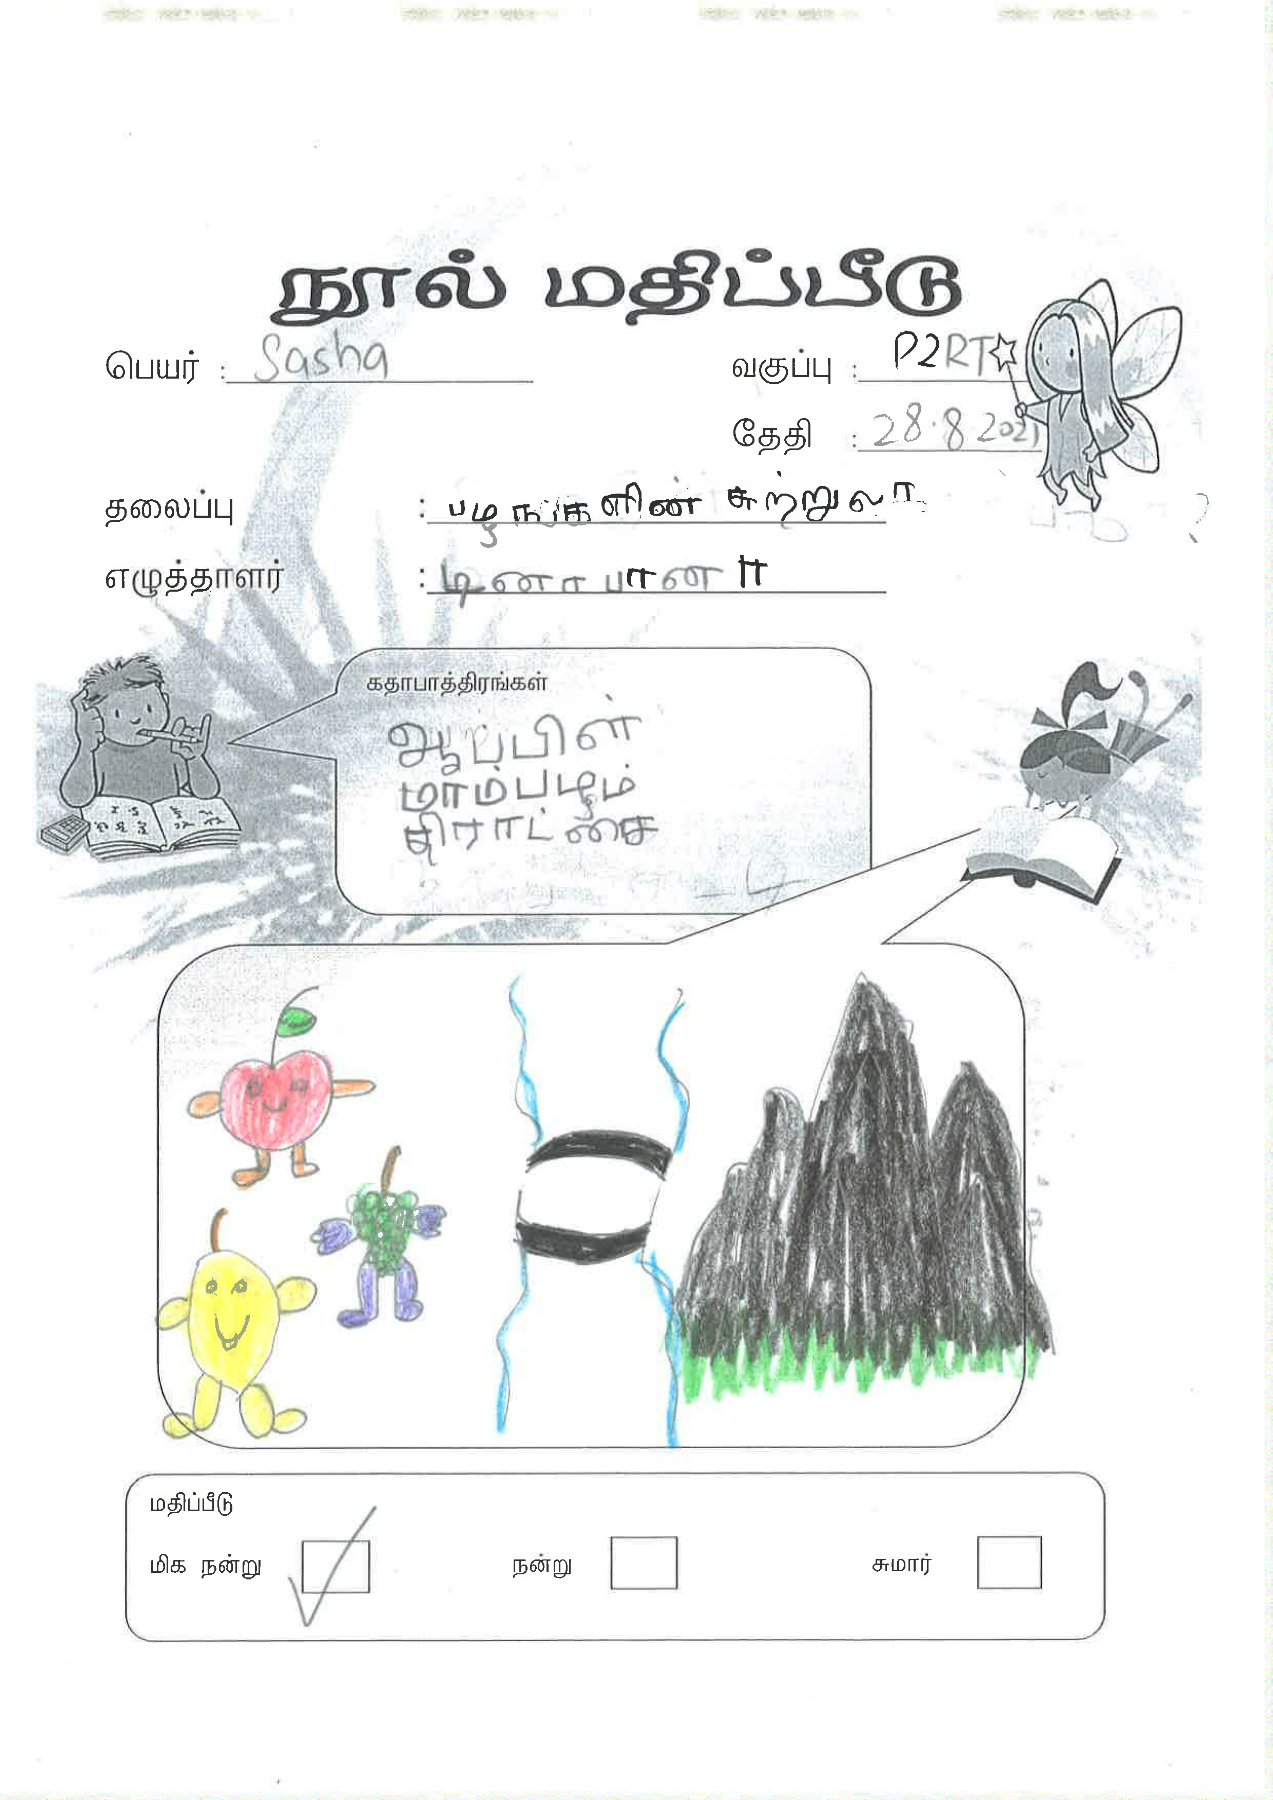 நூல் மதிப்பீடு
பெயர் : Sasha
வகுப்பு : P2RT
தேதி : 28.8.2021
தலைப்பு : பழங்களின் சுற்றுலா
எழுத்தாளர் :
கதாபாத்திரங்கள்
ஆப்பிள்
மாம்பழம்
திராட்சை
மதிப்பீடு
மிக நன்று
நன்று
சுமார்